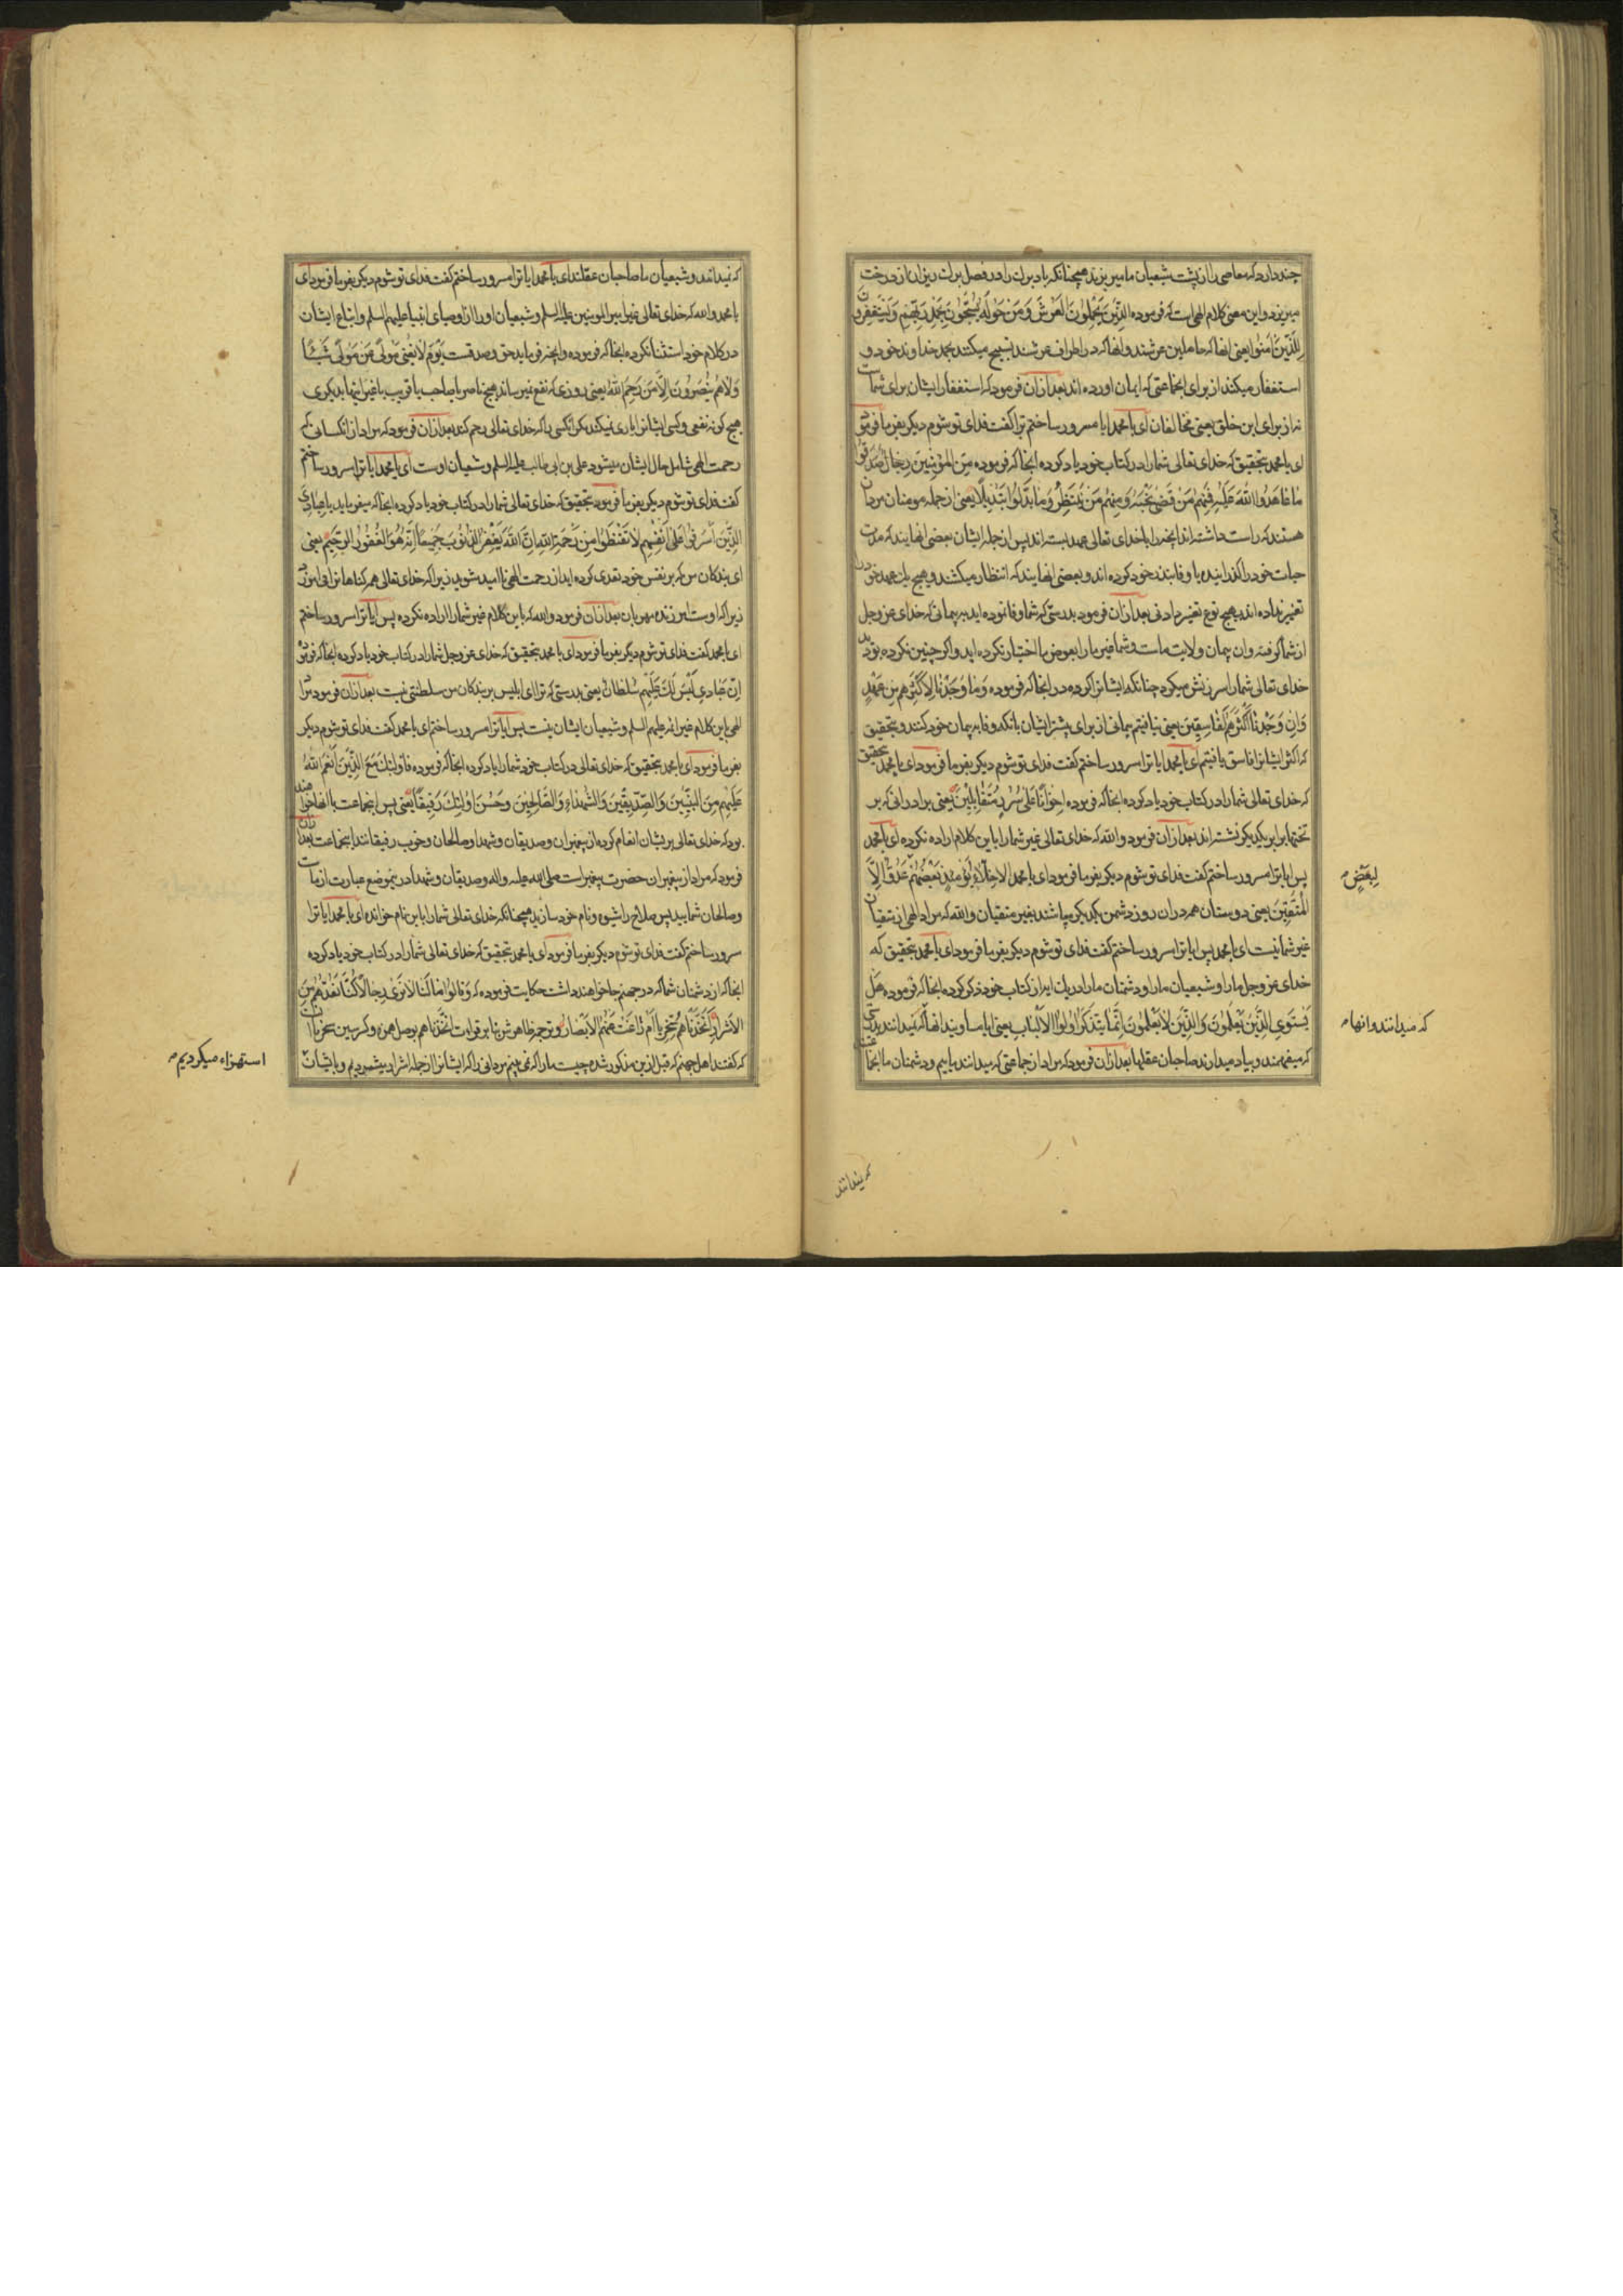 چند دارد که معاصی را از پشت شیعیان ما میریزند همچنانکه باد برک را در فصل برک ریزان از درخت
میریزد و این معنی کلام الهی است که فرموده الَّذِینَ یَحْمِلُونَ الْعَرْشَ وَمَنْ حَوْلَهُ یُسَبِّحُونَ بِحَمْدِ رَبِّهِمْ وَیَسْتَغْفِرُونَ
لِلَّذِینَ اٰمَنُوا یعنی انها که حاملین عرشند و انها که در اطراف عرشند تسبیح میکنند بحمد خداوند خود و
استغفار میکنند از برای انجماعتی که ایمان اورده اند بعد ازان فرمود که استغفار ایشان برای شماست
نه از برای این خلق یعنی مخالفان ای با محمد ایا مسرور ساختم ترا کفت فدای تو شوم دیکر بفرما فرمود
ای با محمد بتحقیق که خدای تعالی شما را در کتاب خود یاد کرده انجا که فرموده مِنَ الْمُؤْمِنِینَ رِجَالٌ صَدَقُوا
مٰا عٰاهَدُوا اللّٰهَ عَلَیْهِ فَمِنْهُمْ مَنْ قَضٰی نَحْبَهُ وَمِنْهُمْ مَنْ یَنْتَظِرُ وَمٰا بَدَّلُوا تَبْدِیلًا یعنی از جمله مومنان مردان
هستند که راست داشته اند انچه را با خدای تعالی عهد بسته اند پس از جمله ایشان بعضی انهایند که مدت
حیات خود را کذرانیده یا وفا بنذر خود کرده اند و بعضی انهایند که انتظار میکشند و هیچ یک عهد خود را
تغییر نداده اند بهیچ نوع تغییر دادنی بعد ازان فرمود بدرستی که شما وفا نموده اید بر پیمانی که خدای عز و جل
از شما کرفته و ان پیمان ولایت ماست و شما غیر ما را بعوض ما اختیار نکرده اید و اکر چنین نکرده بودید
خدای تعالی شما را سرزنش میکرد چنانکه ایشانرا کرده در انجا که فرموده وَمٰا وَجَدْنٰا لِاَکْثَرِهِمْ مِنْ عَهْدٍ
وَاِنْ وَجَدْنٰا اَکْثَرَهُمْ لَفٰاسِقِینَ یعنی نیافتیم پیمانی از برای بیشتر ایشان یا انکه وفا بر پیمان خود کنند و بتحقیق
که اکثر ایشانرا فاسق یافتیم ای با محمد ایا ترا مسرور ساختم کفت فدای تو شوم دیکر بفرما فرمود ای با محمد بتحقیق
که خدای تعالی شما را در کتاب خود یاد کرده انجا که فرموده اِخْوٰانًا عَلیٰ سُرُرٍ مُتَقٰابِلِینَ یعنی برادرانی که بر
تختها برابر یکدیکر نشسته اند بعد ازان فرمود والله که خدای تعالی غیر شما را باین کلام اراده نکرده ای با محمد
پس ایا ترا مسرور ساختم کفت فدای تو شوم دیکر بفرما فرمود ای با محمد اَلْاَخِلّٰاءُ یَوْمَئِذٍ بَعْضُهُمْ عَدُوٌّ اِلَّا
لِبَعْضٍ
الْمُتَّقِینَ یعنی دوستان هم در ان روز دشمن یکدیکر میباشند بغیر متقیان والله که مراد الهی از متقیان
غیر شما نیست ای با محمد پس ایا ترا مسرور ساختم کفت فدای تو شوم دیکر بفرما فرمود ای با محمد بتحقیق که
خدای عز و جل ما را و شیعیان ما را و دشمنان ما را در یک ایه از کتاب خود ذکر کرده انجا که فرموده هَلْ
یَسْتَوِی الَّذِینَ یَعْلَمُونَ وَالَّذِینَ لٰا یَعْلَمُونَ اِنَّمٰا یَتَذَکَّرُ اُولُوا الْاَلْبٰابِ یعنی ایا مساویند انها که نمیدانند بدرستی
که میدانند و انها
که میفهمند و بیاد میدارند صاحبان عقلها بعد ازان فرمود که مراد از جماعتی که میدانند ماییم و دشمنان ما انجماعتند
که نمیدانند
که نمیدانند و شیعیان ما صاحبان عقلند ای با محمد ایا ترا مسرور ساختم کفت فدای تو شوم دیکر بفرما فرمود ای
با محمد والله که خدای تعالی غیر امیر المومنین علیه السلم و شیعیان او را از اوصیای انبیا علیهم السلم و اتباع ایشان
در کلام خود استثنا نکرده انجا که فرموده و انچه فرماید حق و صدقست یَوْمَ لٰا یُغْنِی مَوْلیً عَنْ مَوْلیً شَیْئًا
وَلٰا هُمْ یُنْصَرُونَ اِلَّا مَنْ رَحِمَ اللّٰهُ یعنی روزی که نفع نمیرساند هیچ ناصر یا صاحب یا قریب یا غیر اینها بدیکری
هیچ کونه نفعی و کسی ایشانرا یاری نمیکند مکر انکسی را که خدای تعالی رحم کند بعد ازان فرمود که مراد از انکسانی که
رحمت الهی شامل حال ایشان میشود علی بن ابی طالب علیه السلم و شیعیان اوست ای با محمد ایا ترا مسرور ساختم
کفت فدای تو شوم دیکر بفرما فرمود بتحقیق که خدای تعالی شما را در کتاب خود یاد کرده انجا که میفرماید یٰا عِبٰادِیَ
الَّذِینَ اَسْرَفُوا عَلیٰ اَنْفُسِهِمْ لٰا تَقْنَطُوا مِنْ رَحْمَةِ اللّٰهِ اِنَّ اللّٰهَ یَغْفِرُ الذُّنُوبَ جَمِیعًا اِنَّهُ هُوَ الْغَفُورُ الرَّحِیمُ یعنی
ای بندکان من که بر نفس خود تعدی کرده اید از رحمت الهی نا امید مشوید زیرا که خدای تعالی همه کناهانرا می امرزد
زیرا که اوست امرزنده مهربان بعد ازان فرمود والله که باین کلام غیر شما را اراده نکرده پس ایا ترا مسرور ساختم
ای با محمد کفت فدای تو شوم دیکر بفرما فرمود ای با محمد بتحقیق که خدای عز و جل شما را در کتاب خود یاد کرده انجا که فرموده
اِنَّ عِبٰادِی لَیْسَ لَکَ عَلَیْهِمْ سُلْطٰانٌ یعنی بدرستی که ترا ای ابلیس بر بندکان من سلطنتی نیست بعد ازان فرمود مراد
الهی باین کلام غیر ائمه علیهم السلم و شیعیان ایشان نیست پس ایا ترا مسرور ساختم ای با محمد کفت فدای تو شوم دیکر
بفرما فرمود ای با محمد بتحقیق که خدای تعالی در کتاب خود شما را یاد کرده انجا که فرموده فَاُولٰئِکَ مَعَ الَّذِینَ اَنْعَمَ اللّٰهُ
عَلَیْهِمْ مِنَ النَّبِیِّینَ وَالصِّدِّیقِینَ وَالشُّهَدٰاءِ وَالصّٰالِحِینَ وَحَسُنَ اُولٰئِکَ رَفِیقًا یعنی پس انجماعت با انها خواهند
بود که خدای تعالی بریشان انعام کرده از پیغمبران و صدیقان و شهدا و صالحان و خوب رفیقانند انجماعت بعد ازان
فرمود که مراد از پیغمبران حضرت پیغمبر است صلی الله علیه و اله و صدیقان و شهدا در ینموضع عبارت از ماست
و صالحان شمایید پس صلاح را شیوه و نام خود سازید همچنانکه خدای تعالی شما را باین نام خوانده ای با محمد ایا ترا
مسرور ساختم کفت فدای تو شوم دیکر بفرما فرمود ای با محمد بتحقیق که خدای تعالی شما را در کتاب خود یاد کرده
انجا که از دشمنان شما که در جهنم جا خواهند داشت حکایت فرموده که وَقٰالُوا مٰا لَنٰا لٰا نَریٰ رِجٰالًا کُنّٰا نَعُدُّهُمْ مِنَ
الْاَشْرٰارِ اَتَّخَذْنٰاهُمْ سِخْرِیًّا اَمْ زٰاغَتْ عَنْهُمُ الْاَبْصٰارُ و ترجمه ظاهرش بنا بر قراءت اتَّخَذْنٰاهم بوصل همزه و کسر سین سخریا ان
که کفتند اهل جهنم که قبل ازین مذکور شده چیست ما را که نمی بینیم مردانی را که ایشانرا از جمله اشرار میشمردیم و بایشان
استهزاء میکردیم